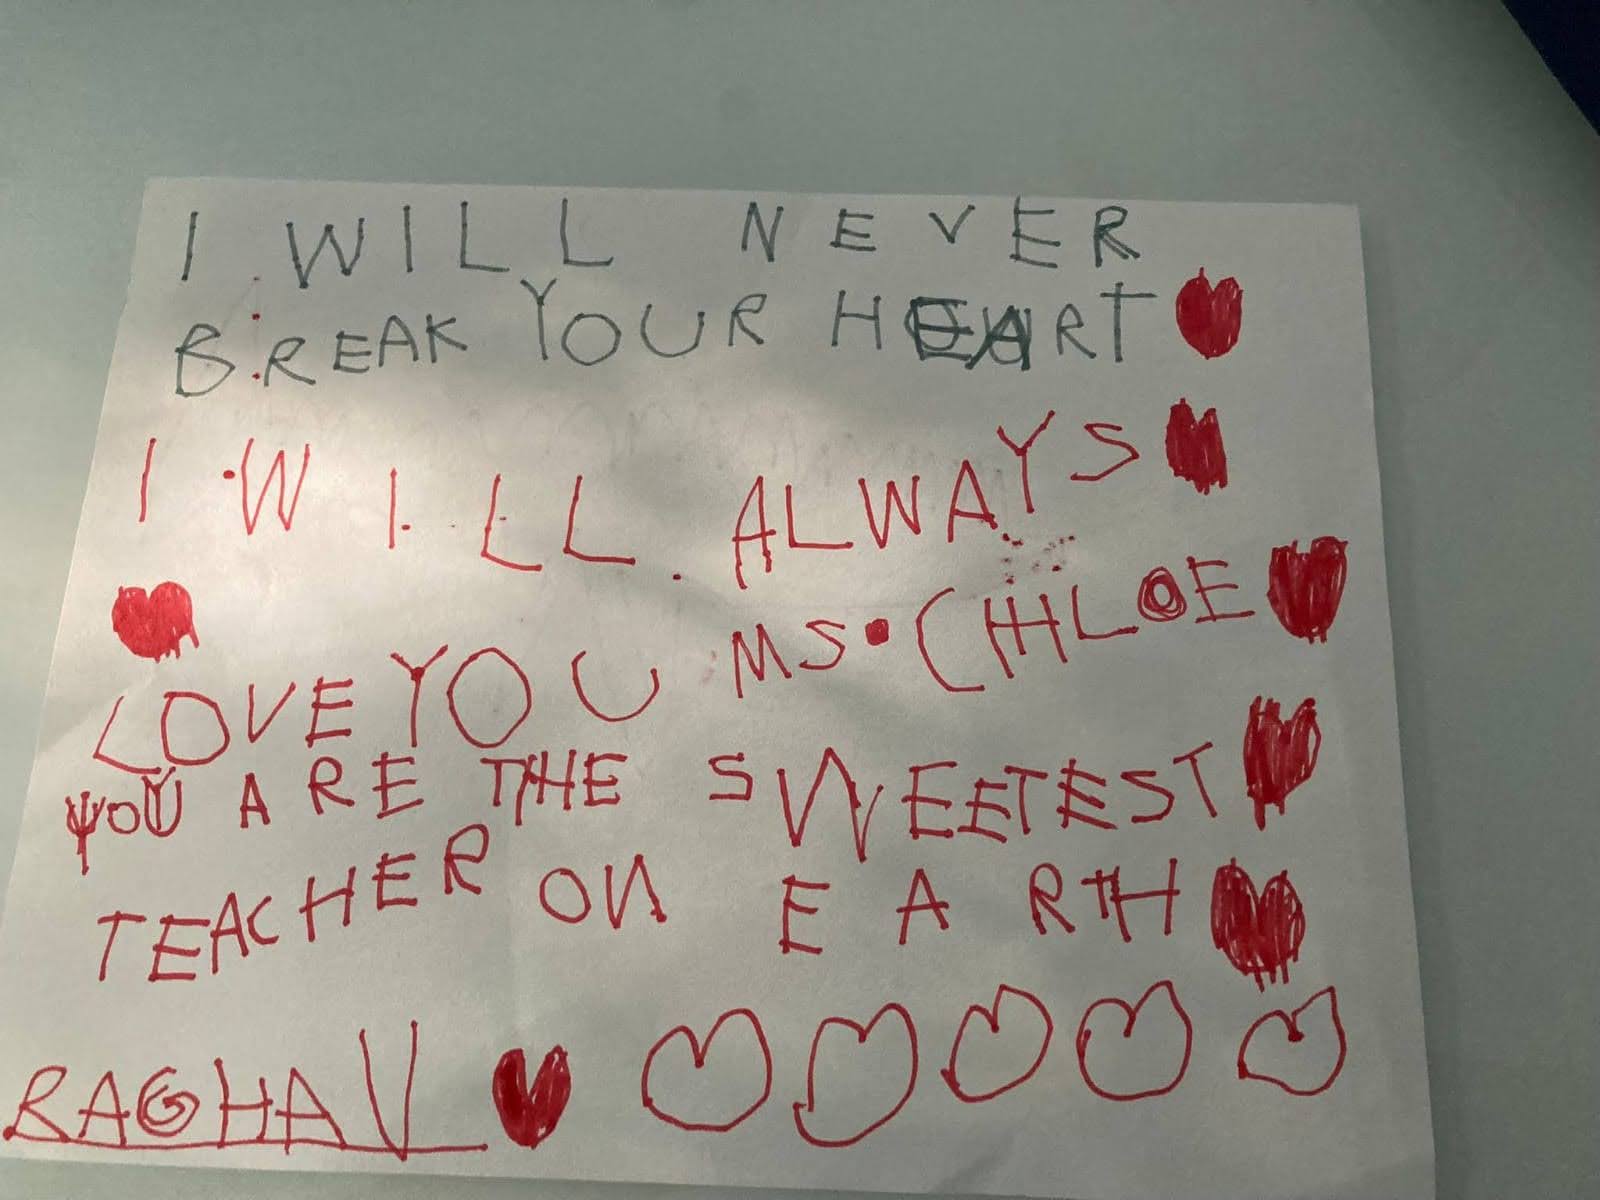 I WILL NEVER
BREAK YOUR HEART
I WILL ALWAYS
LOVE YOU MS. CHLOE
YOU ARE THE SWEETEST
TEACHER ON EARTH
RAGHAV